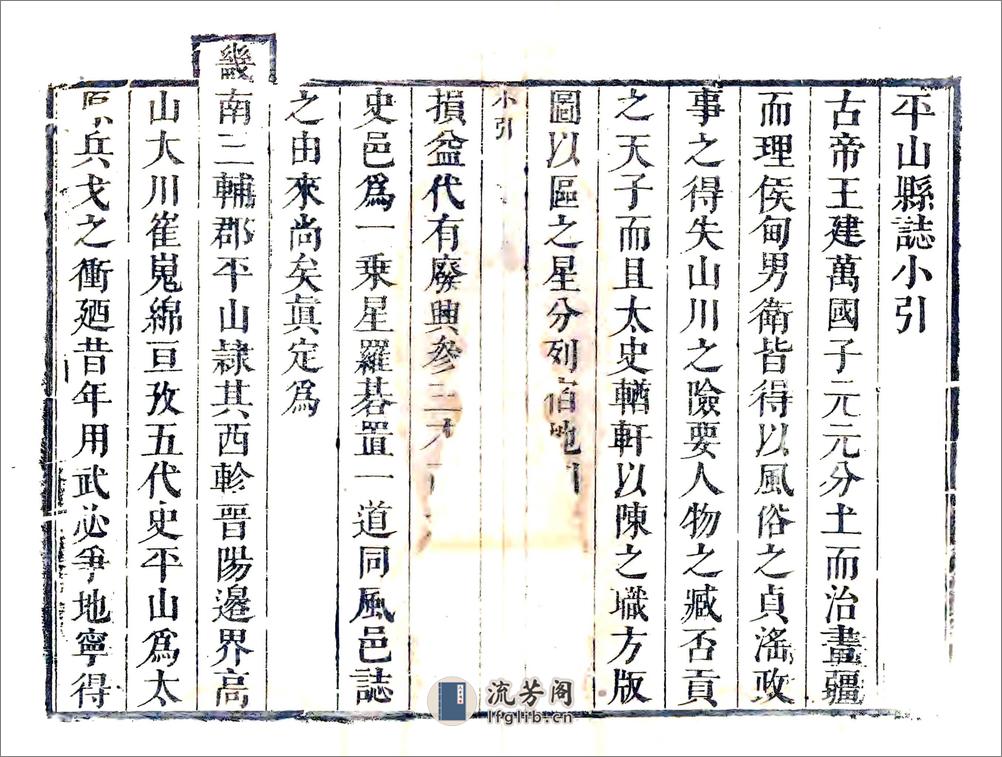 平山縣誌小引
古帝王建萬國子元元分土而治畫疆
而理侯甸男衛皆得以風俗之貞滛政
事之得失山川之險要人物之臧否貢
之天子而且太史輶軒以陳之職方版
圖以區之星分列宿地
小引
損益代有廢興參三才
史邑爲一乗星羅碁置一道同風邑誌
之由來尚矣眞定爲
畿南三輔郡平山隷其西軫晉陽邊界高
山大川崔嵬綿亘攷五代史平山爲太
原兵戈之衝廼昔年用武必爭地寧得
流芳阁
lfglib.cn